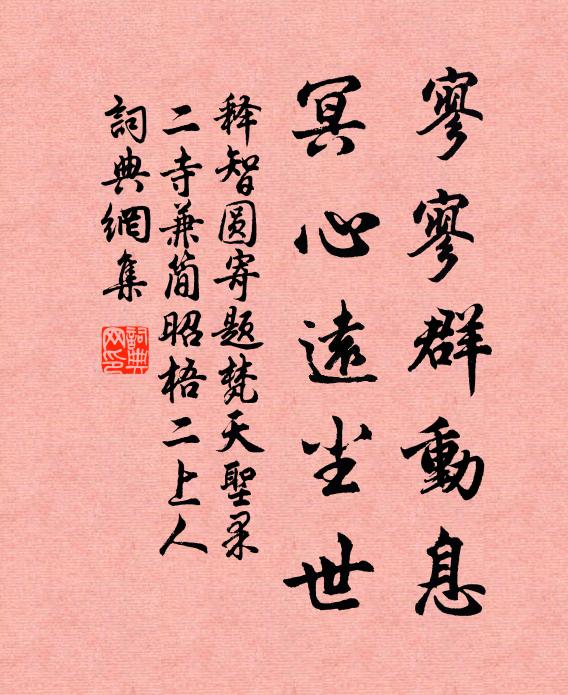 寥寥群動息
冥心遠尘世
释智圆寄题梵天聖果
二寺兼简昭梧二上人
詞典網集
詞典网印